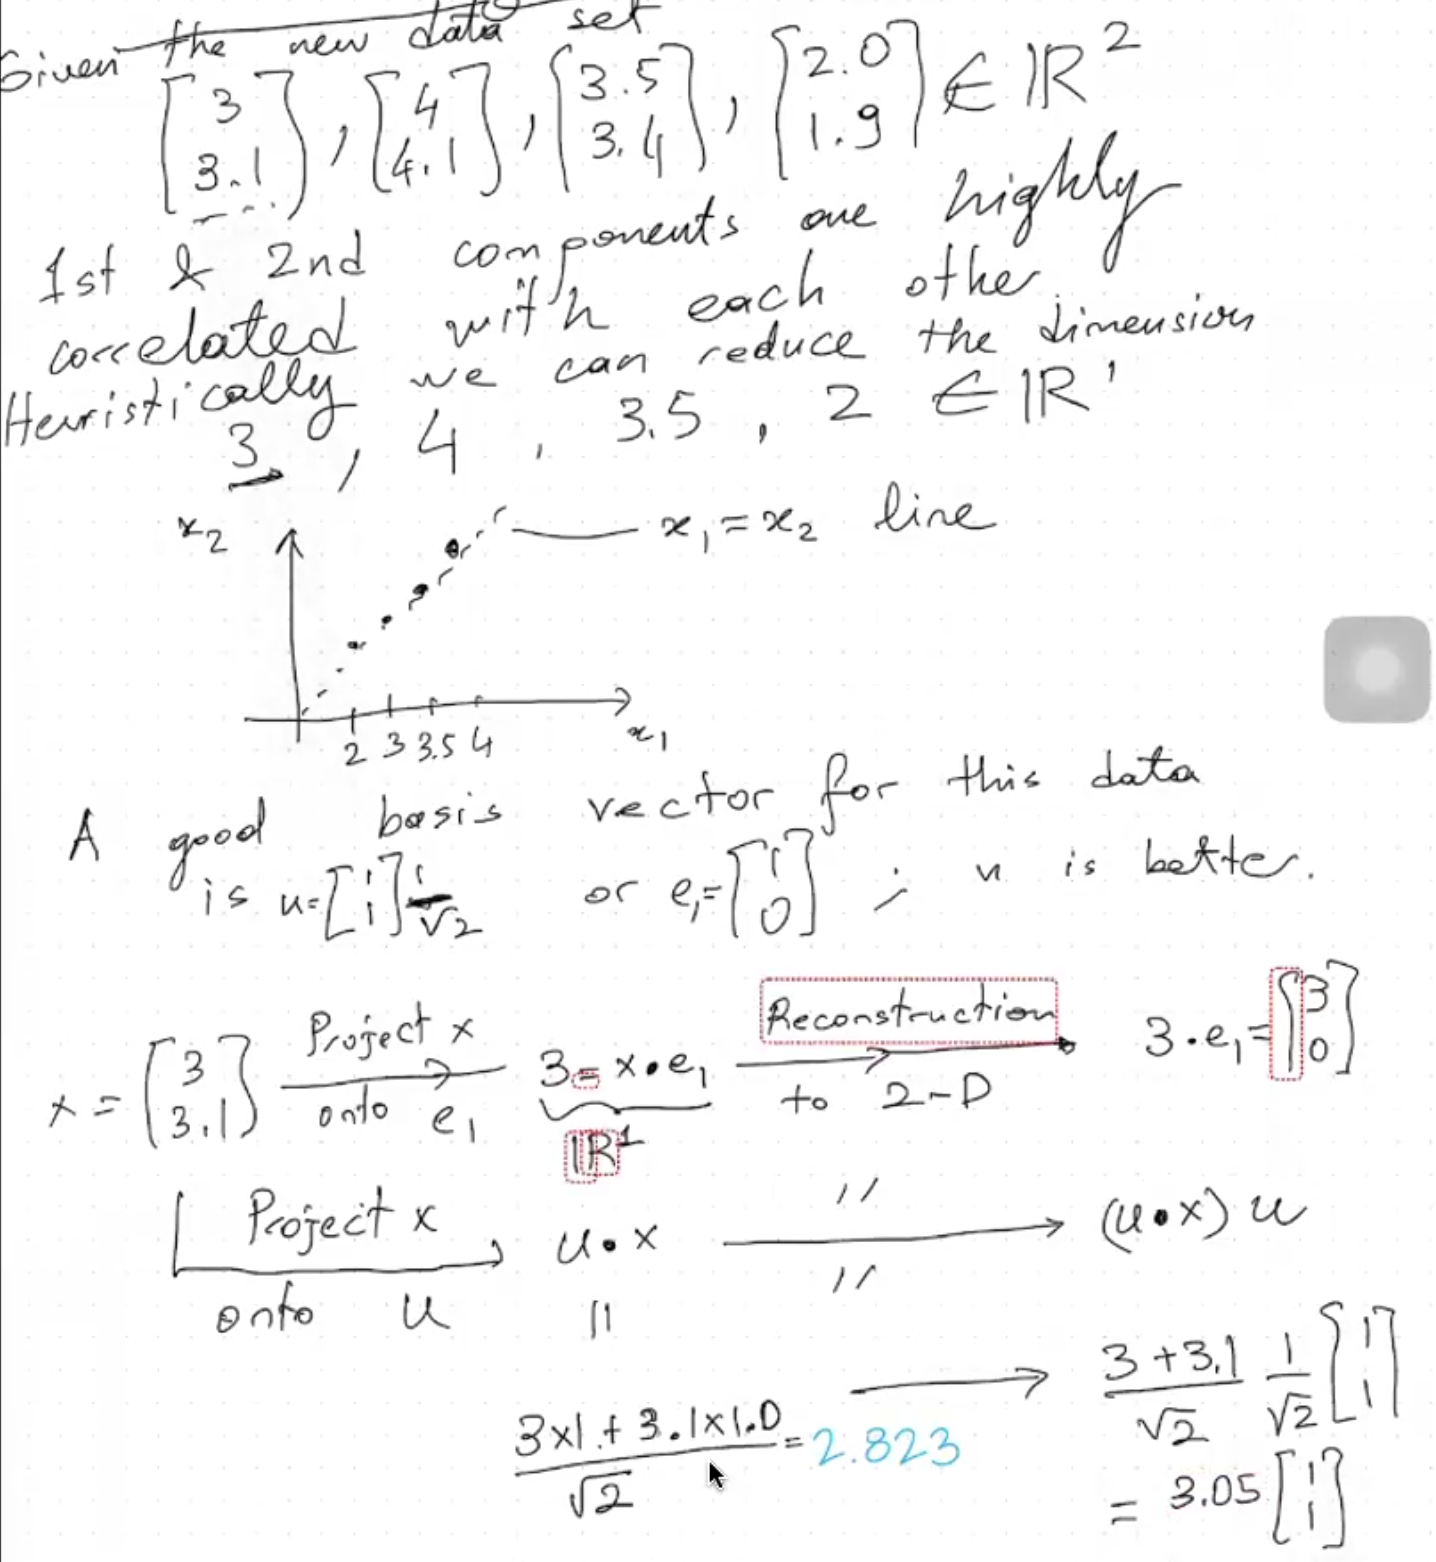 Given the new data set
[3 3.1], [4 4.1], [3.5 3.4], [2.0 1.9] ∈ ℝ²
1st & 2nd components are highly
correlated with each other
Heuristically we can reduce the dimension
3, 4, 3.5, 2 ∈ ℝ¹
x₂
x₁ = x₂ line
2 3 3.5 4
x₁
A good basis vector for this data
is u = [1 1] 1/√2 or e₁ = [1 0] ; u is better.
x = [3 3.1] Project x onto e₁ 3 = x • e₁ Reconstruction to 2-D 3 • e₁ = [3 0]
ℝ¹
Project x onto u u • x // // (u • x) u
||
(3x1 + 3.1x1.0)/√2 = 2.823 (3 + 3.1)/√2 1/√2 [1 1]
= 3.05 [1 1]